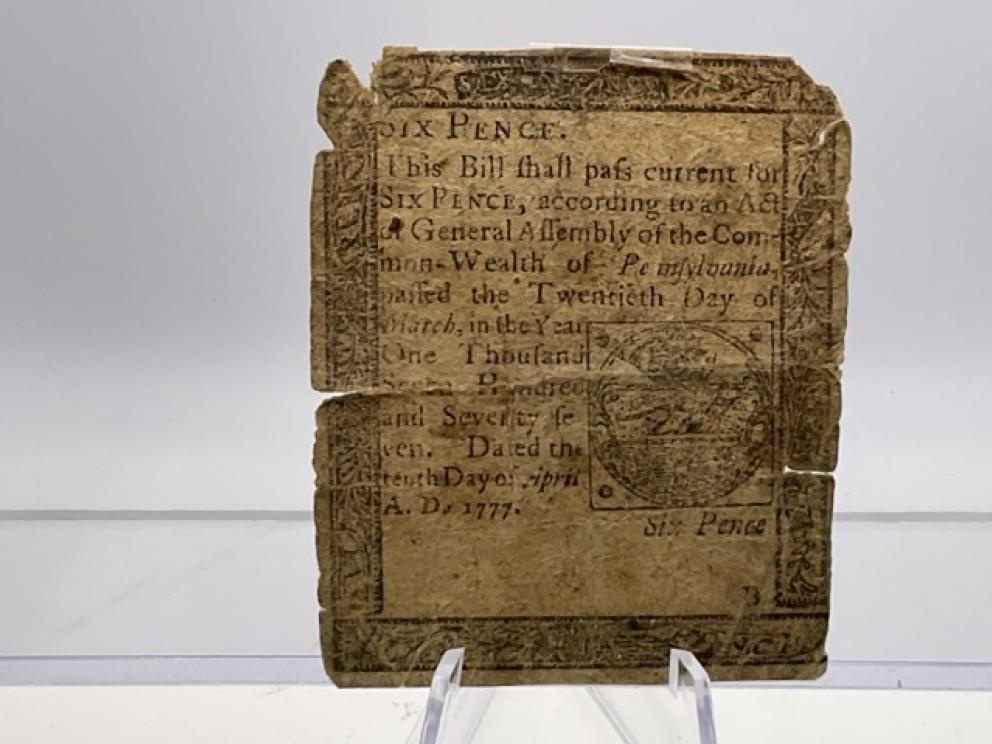 SIX PENCE.
This Bill ſhall paſs current for
SIX PENCE, according to an Act
of General Aſſembly of the Com-
mon-Wealth of Pennſylvania,
paſſed the Twentieth Day of
March, in the Year
One Thouſand
Seven Hundred
and Seventy ſe
ven. Dated the
tenth Day of April
A. D. 1777.
Six Pence
B